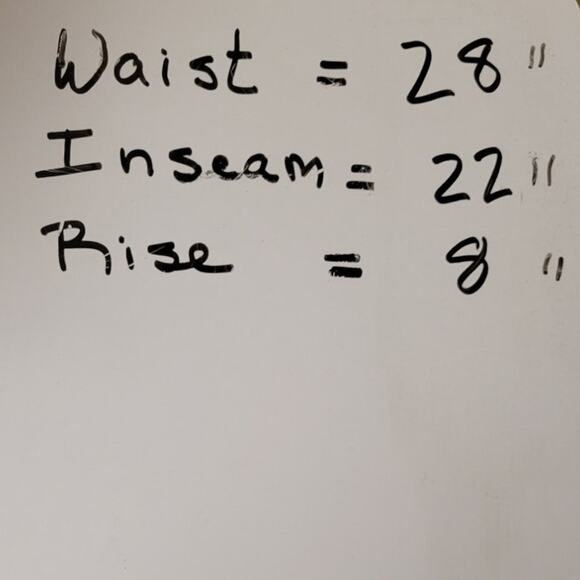 Waist = 28"
Inseam = 22"
Rise = 8"